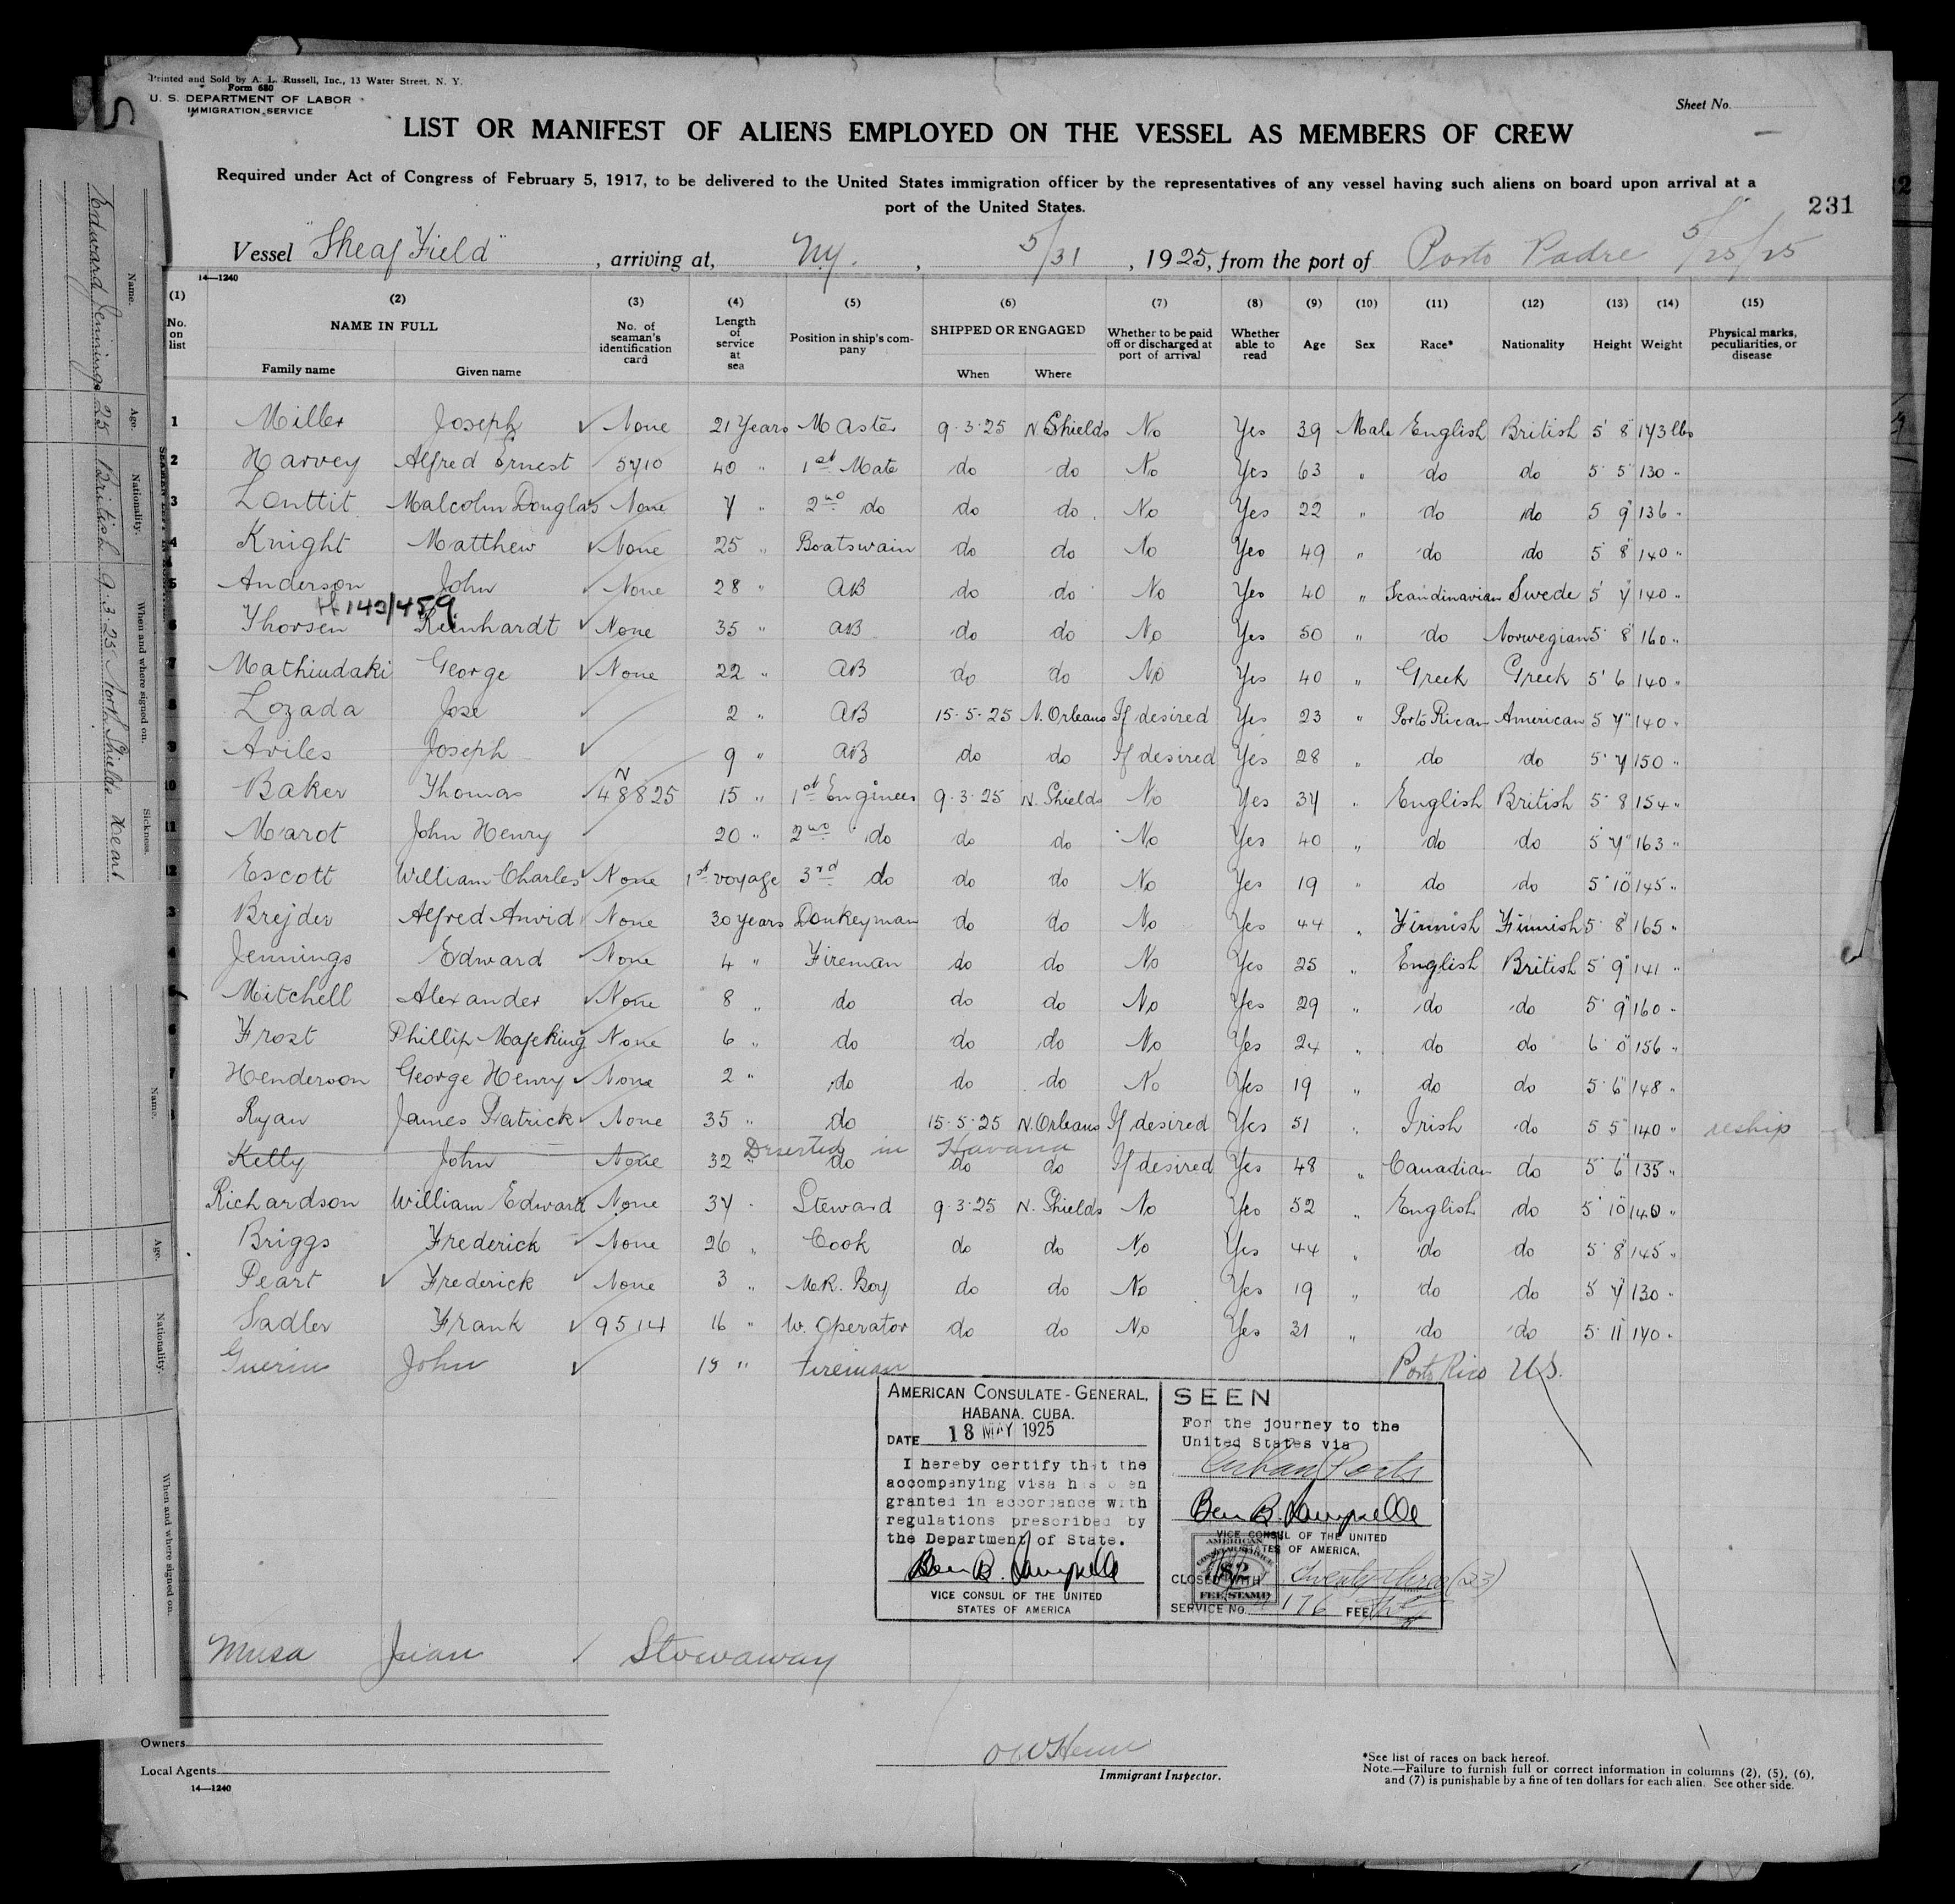 Printed and Sold by A. L. Russell, Inc., 13 Water Street, N. Y.
Form 680
U. S. DEPARTMENT OF LABOR
IMMIGRATION SERVICE
Sheet No.
LIST OR MANIFEST OF ALIENS EMPLOYED ON THE VESSEL AS MEMBERS OF CREW
Required under Act of Congress of February 5, 1917, to be delivered to the United States immigration officer by the representatives of any vessel having such aliens on board upon arrival at a
port of the United States.
231
Vessel "Sheaf Field", arriving at, N.Y., 5/31, 1925, from the port of Porto Padre 5/25/25
14—1240
(1) (2) (3) (4) (5) (6) (7) (8) (9) (10) (11) (12) (13) (14) (15)
No. on list NAME IN FULL Family name Given name No. of seaman's identification card Length of service at sea Position in ship's company SHIPPED OR ENGAGED When Where Whether to be paid off or discharged at port of arrival Whether able to read Age Sex Race* Nationality Height Weight Physical marks, peculiarities, or disease
1 Miller Joseph ✓ None 21 Years Master 9·3·25 N. Shields No Yes 39 Male English British 5' 8" 143 lbs
2 Harvey Alfred Ernest 5710 40 " 1st Mate do do No Yes 63 " do do 5' 5" 130 "
3 Lenttit Malcolm Douglas None 7 " 2nd do do do No Yes 22 " do do 5 9" 136 "
4 Knight Matthew ✓ None 25 " Boatswain do do No Yes 49 " do do 5 8" 140 "
5 Anderson John ✓ None 28 " AB do do No Yes 40 " Scandinavian Swede 5' 7" 140 "
H 140/459
6 Thorsen Reinhardt ✓ None 35 " AB do do No Yes 50 " do Norwegian 5' 8" 160 "
7 Mathiudaki George ✓ None 22 " AB do do No Yes 40 " Greek Greek 5' 6 140 "
8 Lozada Jose ✓ 2 " AB 15·5·25 N. Orleans If desired Yes 23 " Porto Rican American 5 7" 140 "
9 Aviles Joseph ✓ 9 " AB do do If desired Yes 28 " do do 5' 7 150 "
N
10 Baker Thomas ✓ 48825 15 " 1st Engineer 9·3·25 N. Shields No Yes 37 " English British 5' 8 154 "
11 Marot John Henry ✓ 20 " 2nd do do do No Yes 40 " do do 5 7" 163 "
12 Escott William Charles ✓ None 1st voyage 3rd do do do No Yes 19 " do do 5' 10" 145 "
3 Brejder Alfred Arvid None 30 years Donkeyman do do No Yes 44 " Finnish Finnish 5' 8" 165 "
4 Jennings Edward ✓ None 4 " Fireman do do No Yes 25 " English British 5' 9" 141 "
Mitchell Alexander ✓ None 8 " do do do No Yes 29 " do do 5' 9" 160 "
6 Frost Phillip Mafeking None 6 " do do do No Yes 24 " do do 6' 0" 156 "
7 Henderson George Henry ✓ None 2 " do do do No Yes 19 " do do 5' 6" 148 "
Ryan James Patrick ✓ None 35 " do 15·5·25 N. Orleans If desired Yes 51 " Irish do 5 5" 140 " reship
Deserted in Havana
Kelly John None 32 " do do do If desired Yes 48 " Canadian do 5' 6" 135 "
Richardson William Edward None 37 " Steward 9·3·25 N. Shields No Yes 52 " English do 5' 10" 140 "
Briggs Frederick ✓ None 26 " Cook do do No Yes 44 " do do 5 8" 145 "
Peart ✓ Frederick ✓ None 3 " M.R. Boy do do No Yes 19 " do do 5 7" 130 "
Sadler Frank ✓ 9514 16 " W. Operator do do No Yes 31 " do do 5' 11" 140 "
Guerin John ✓ 15 " Fireman Porto Rico U.S.
AMERICAN CONSULATE-GENERAL,
HABANA. CUBA.
DATE 18 MAY 1925
I hereby certify that the
accompanying visa has been
granted in accordance with
regulations prescribed by
the Department of State.
VICE CONSUL OF THE UNITED
STATES OF AMERICA
SEEN
For the journey to the
United States via
Cuban Ports
VICE CONSUL OF THE UNITED
STATES OF AMERICA.
AMERICAN CONSULAR SERVICE
$2
FEE STAMP
CLOSED WITH twenty-three (23)
SERVICE No. 4176 FEE
Musa Juan / Stowaway
Owners
Local Agents
14—1240
Immigrant Inspector.
*See list of races on back hereof.
Note.—Failure to furnish full or correct information in columns (2), (5), (6),
and (7) is punishable by a fine of ten dollars for each alien. See other side.
Name. Age. Nationality. When and where signed on. Sickness.
Edward Jennings 25 British 9·3·25 North Shields Heart
Name. Age. Nationality. When and where signed on.